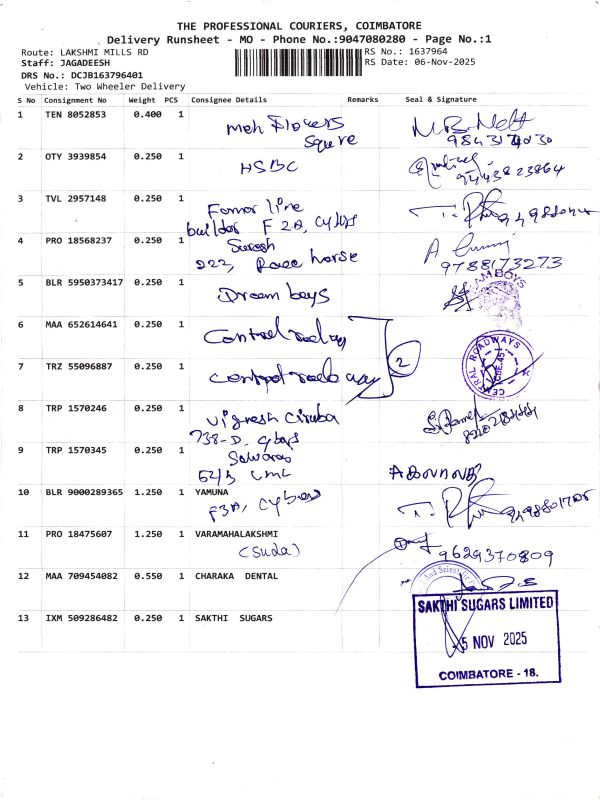 THE PROFESSIONAL COURIERS, COIMBATORE
Delivery Runsheet - MO - Phone No.:9047080280 - Page No.:1
Route: LAKSHMI MILLS RD RS No.: 1637964
Staff: JAGADEESH RS Date: 06-Nov-2025
DRS No.: DCJB163796401
Vehicle: Two Wheeler Delivery
S No Consignment No Weight PCS Consignee Details Remarks Seal & Signature
1 TEN 8052853 0.400 1
Square
2 OTY 3939854 0.250 1 HSBC
9443823864
3 TVL 2957148 0.250 1
builder F 2A,
4 PRO 18568237 0.250 1 Suresh
222, Race horse
9788173273
5 BLR 5950373417 0.250 1 Dream boys
AM BOYS
6 MAA 652614641 0.250 1
2
7 TRZ 55096887 0.250 1
CENTRAL ROADWAYS
CBE.45
8 TRP 1570246 0.250 1
738-D.
9 TRP 1570345 0.250 1
10 BLR 9000289365 1.250 1 YAMUNA
F3A,
11 PRO 18475607 1.250 1 VARAMAHALAKSHMI
(Suda) 9629370809
12 MAA 709454082 0.550 1 CHARAKA DENTAL
And Scientific
13 IXM 509286482 0.250 1 SAKTHI SUGARS
SAKTHI SUGARS LIMITED
5 NOV 2025
COIMBATORE - 18.